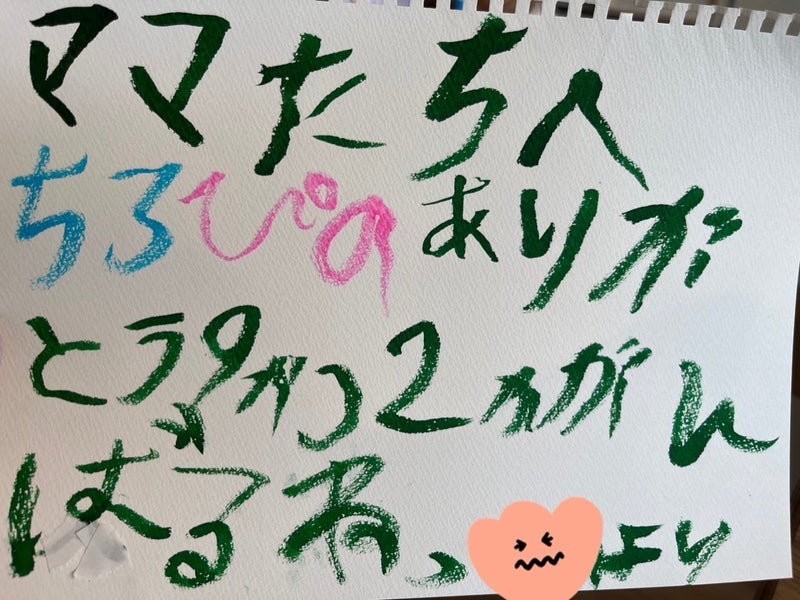 ママたちへ
ちろぴのありが
とう、9がつ2かがん
ばるね、より